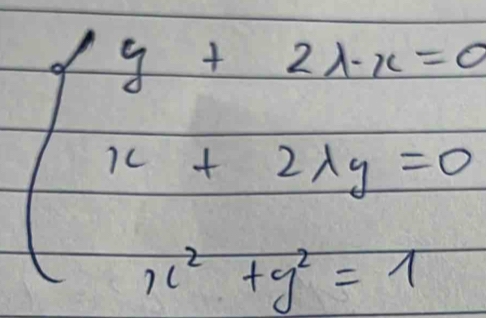 y + 2λ·x = 0
x + 2λy = 0
x² + y² = 1